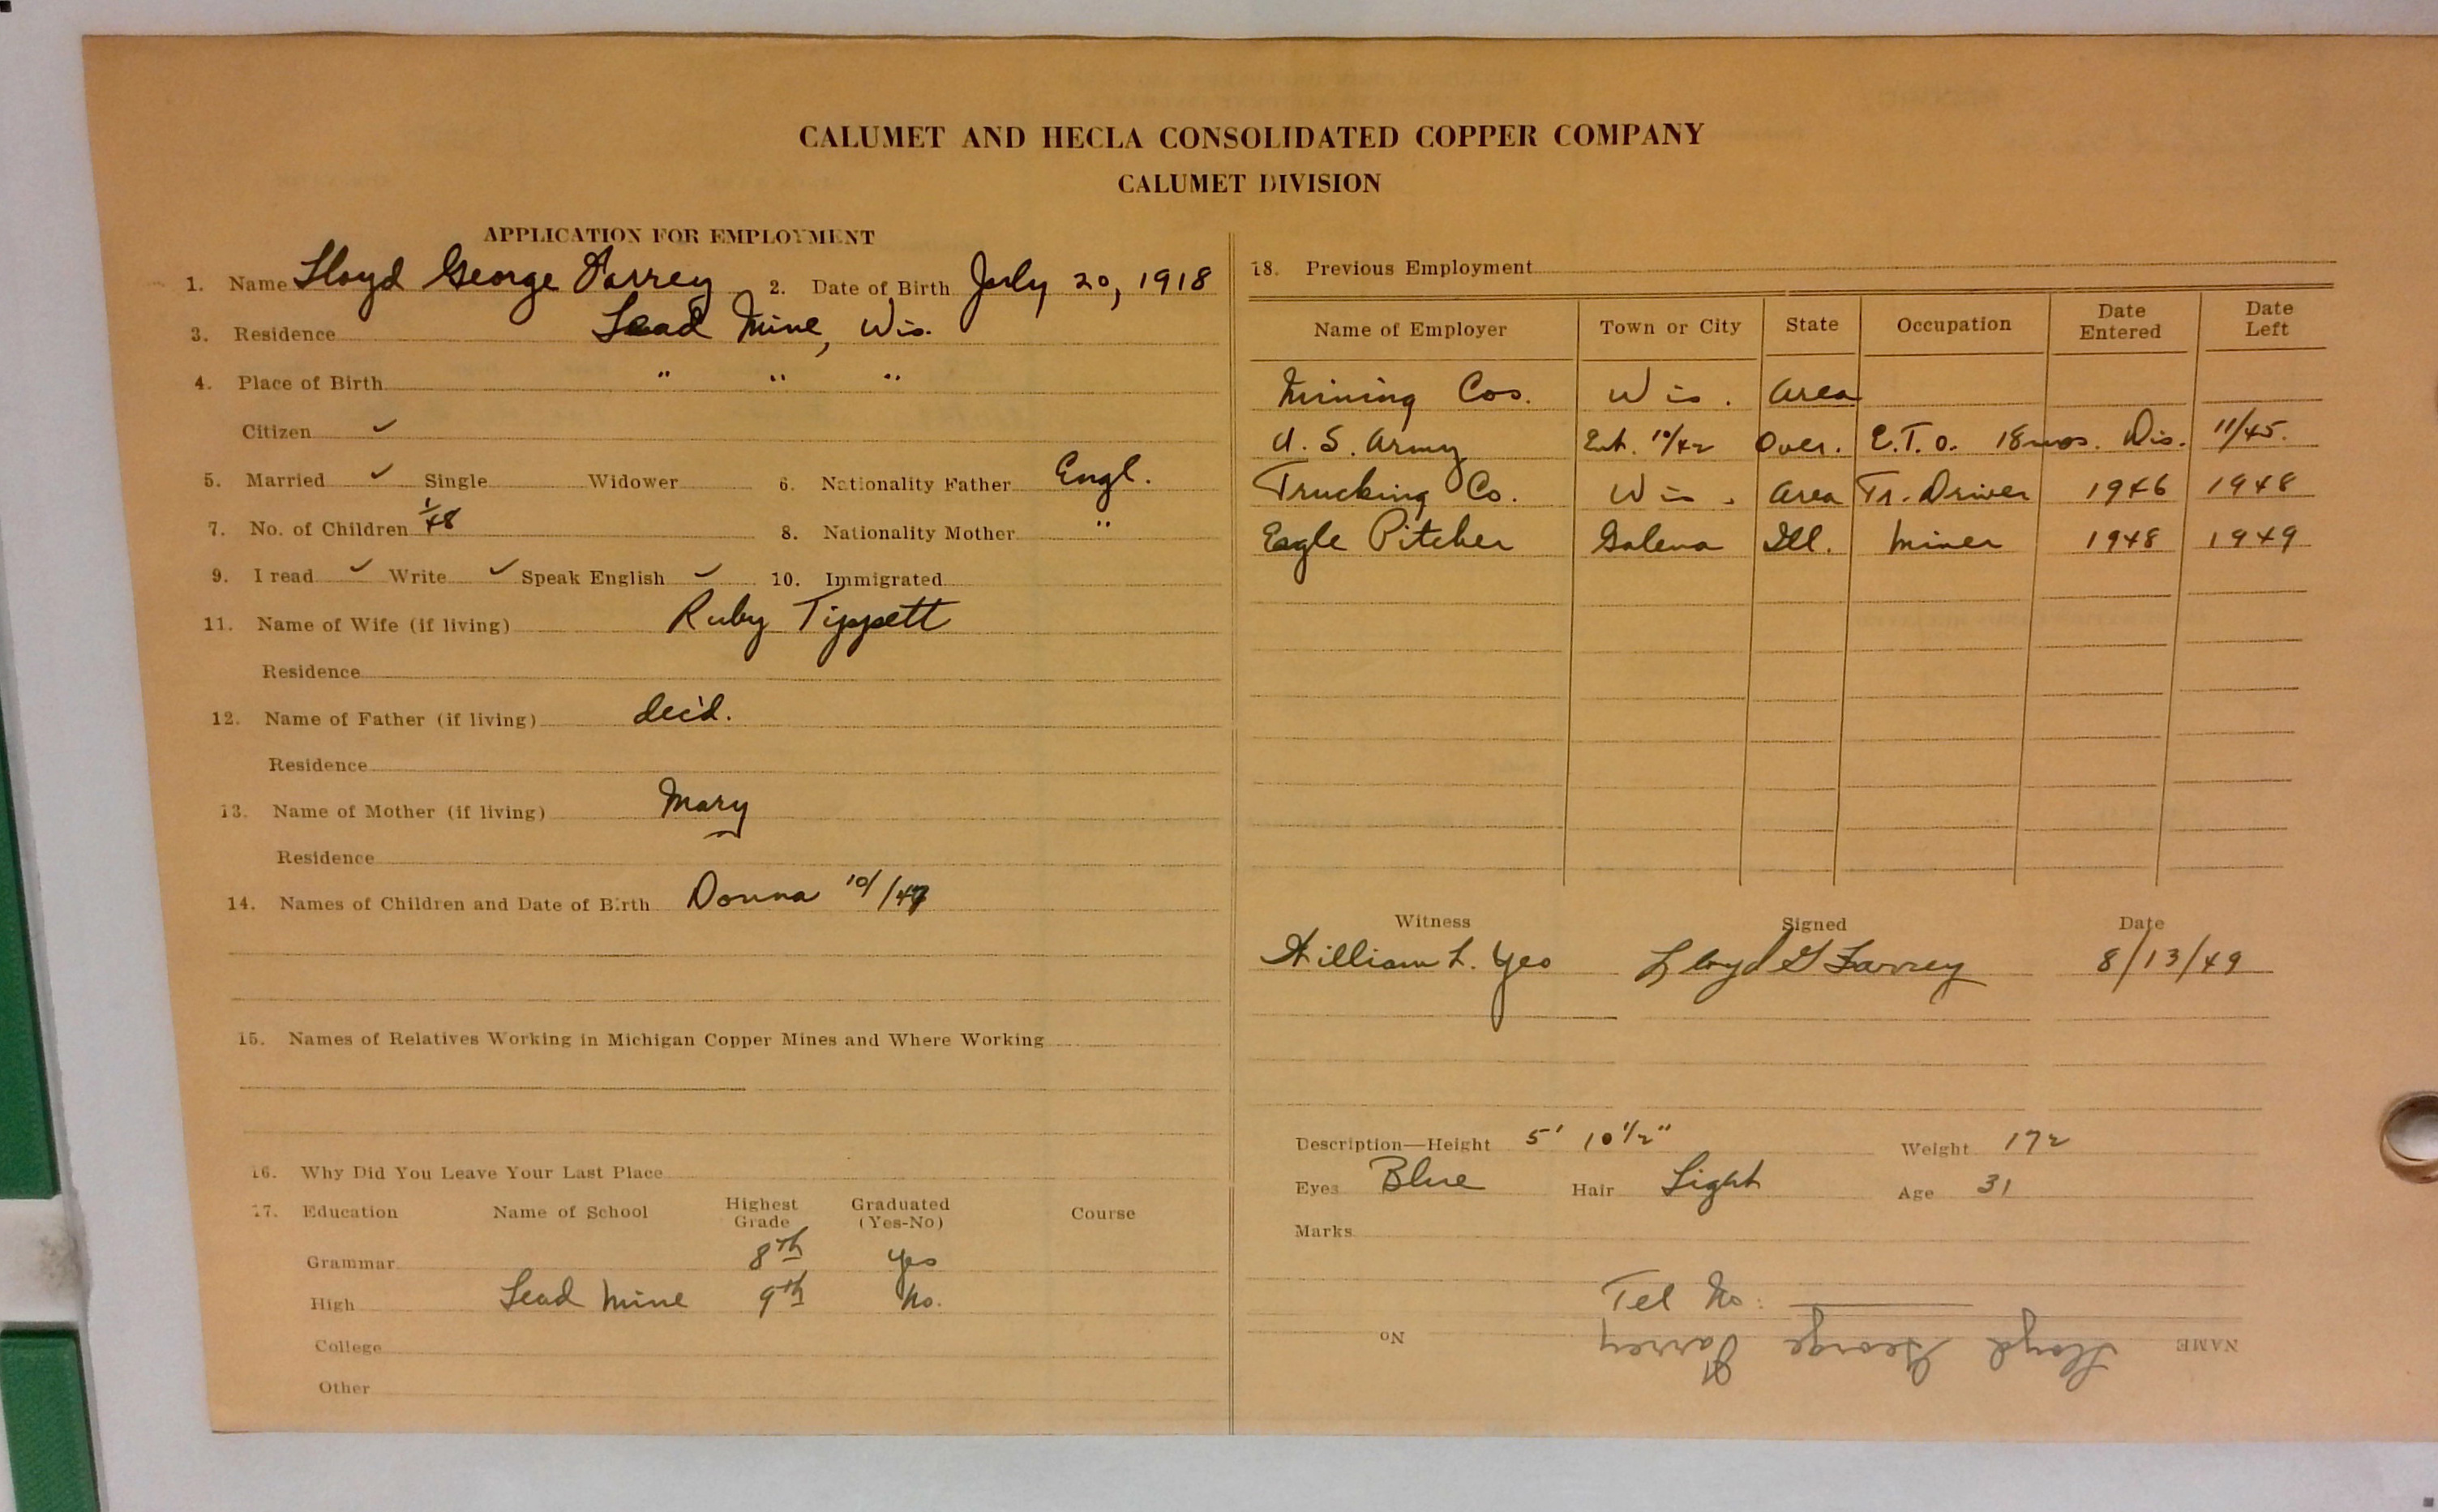 CALUMET AND HECLA CONSOLIDATED COPPER COMPANY
CALUMET DIVISION
APPLICATION FOR EMPLOYMENT
1. Name Lloyd George Farrey 2. Date of Birth July 20, 1918
3. Residence Lead Mine, Wis.
4. Place of Birth " " "
Citizen ✓
5. Married ✓ Single Widower 6. Nationality Father Engl.
7. No. of Children 8. Nationality Mother "
9. I read ✓ Write ✓ Speak English ✓ 10. Immigrated
11. Name of Wife (if living) Ruby Tippett
Residence
12. Name of Father (if living) dec'd.
Residence
13. Name of Mother (if living) Mary
Residence
14. Names of Children and Date of Birth Donna
15. Names of Relatives Working in Michigan Copper Mines and Where Working
16. Why Did You Leave Your Last Place
17. Education Name of School Highest Grade Graduated (Yes-No) Course
Grammar 8th Yes
High Lead Mine 9th No.
College
Other
18. Previous Employment
Name of Employer Town or City State Occupation Date Entered Date Left
Mining Cos. Wis. Area
U. S. Army Ent. 10/42 Over. E.T.O. 18 mos. Dis. 11/45.
Trucking Co. Wis. Area Tr. Driver 1946 1948
Eagle Pitcher Galena Ill. Miner 1948 1949
Witness Signed Date
William L. Yeo Lloyd G Farrey 8/13/49
Description—Height 5' 10 1/2" Weight 172
Eyes Blue Hair Light Age 31
Marks
Tel No:
NAME Lloyd George Farrey No